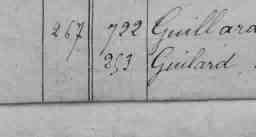 267 722 Guillard
253 Guilard